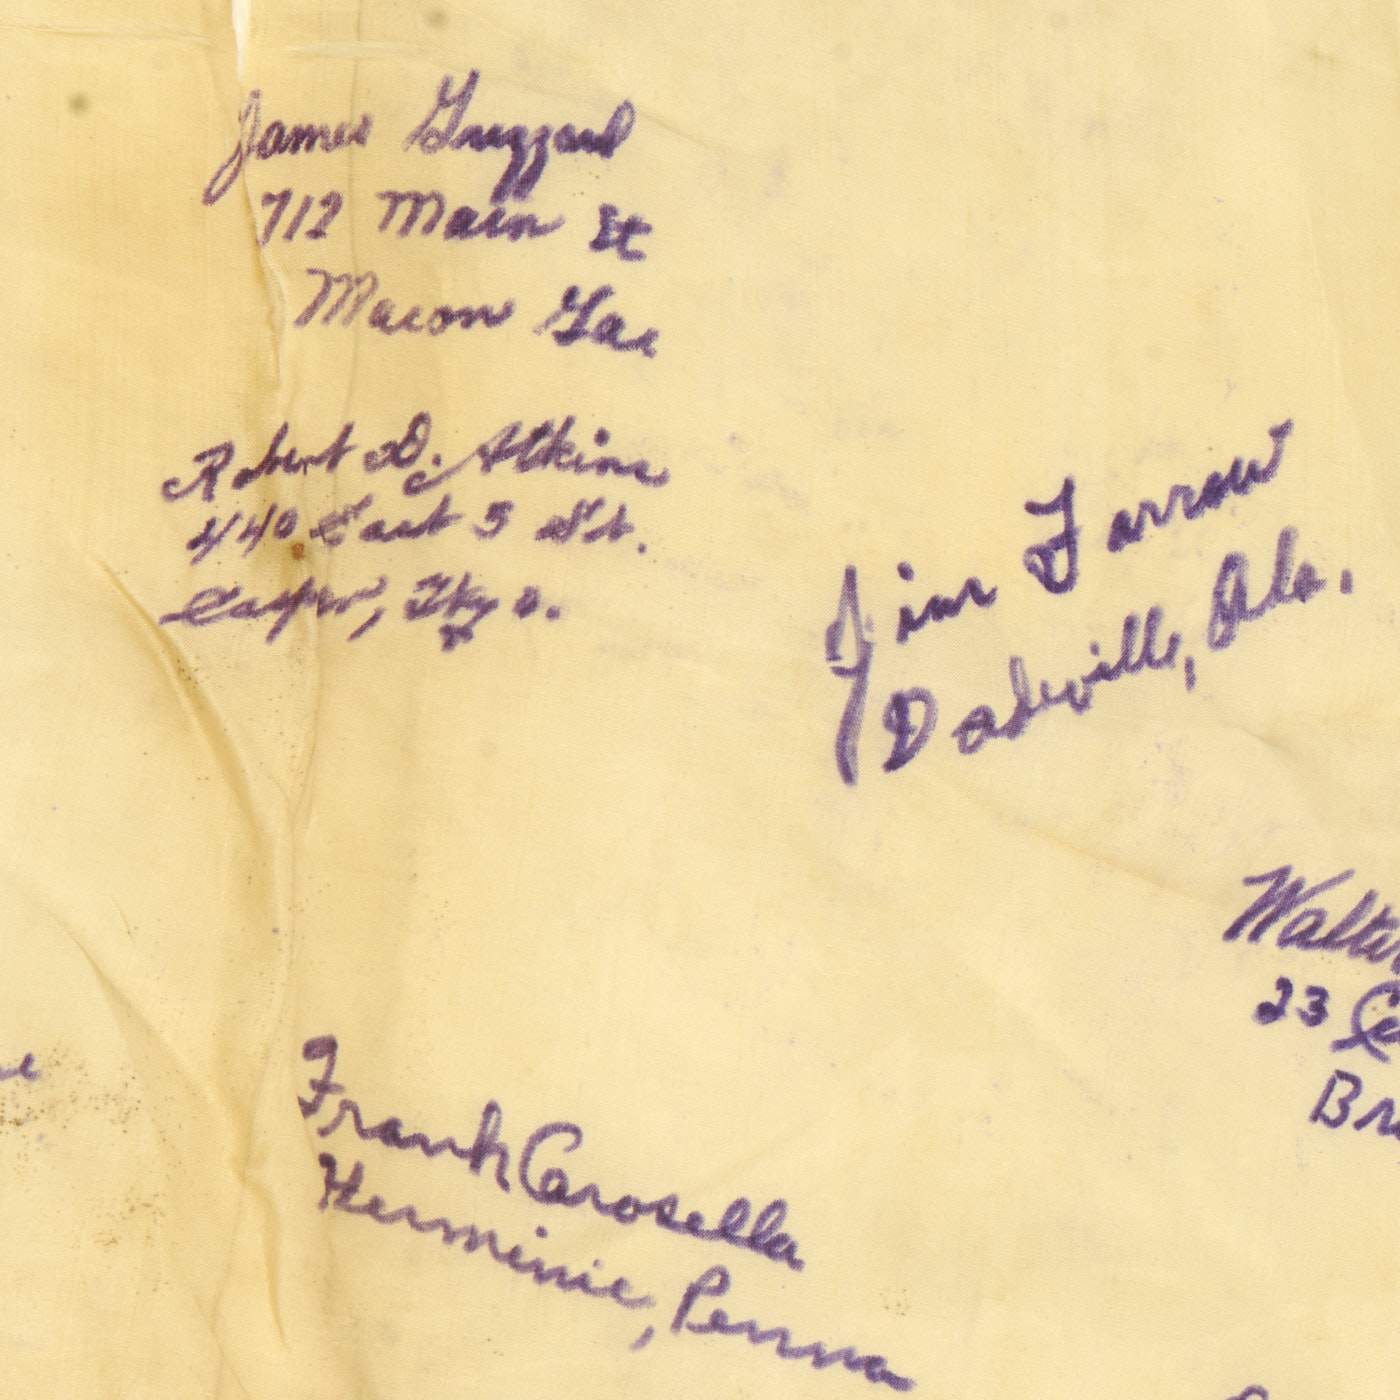 James Guzzard
712 Main St
Macon Ga
Robert D. Atkins
440 East 5 St.
Casper, Wyo.
Jim Farrow
Dadeville, Ala.
Walter
23
Frank Carosella
Herminie, Penna